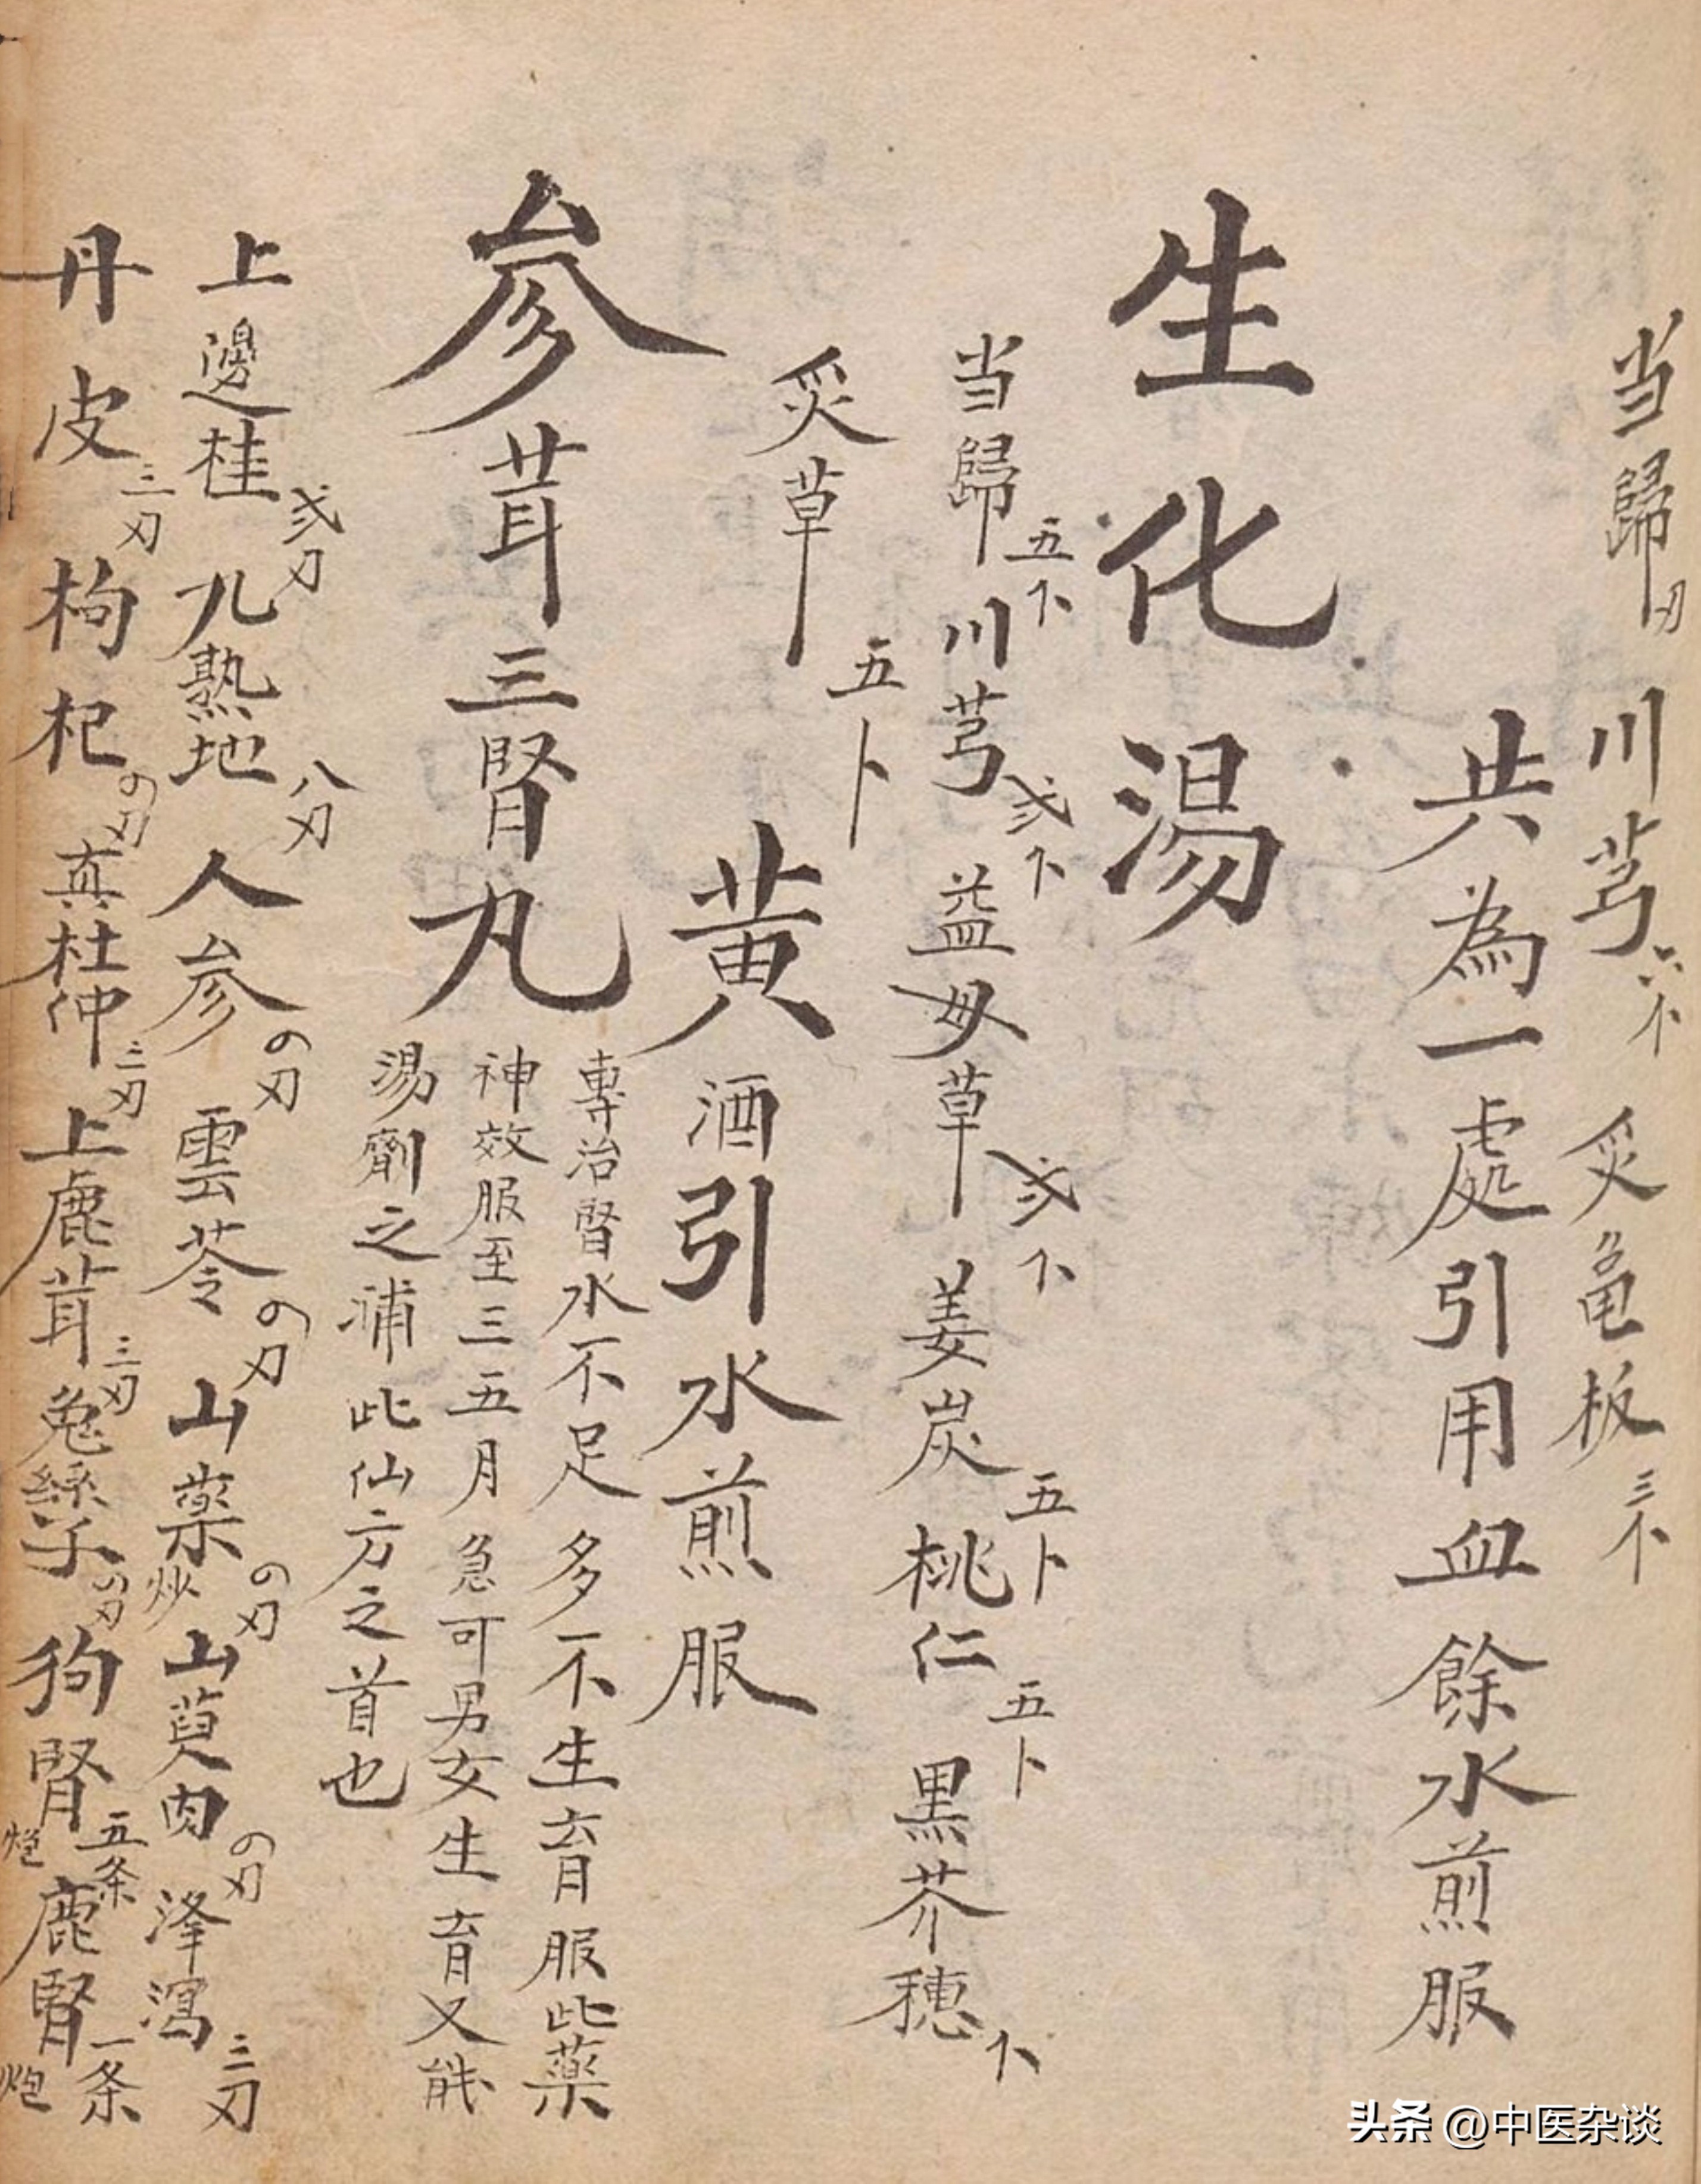 当歸刄 川芎六个 炙龟板三个
共為一處引用血餘水煎服
生化湯
当歸五卜 川芎弍卜 益母草弍卜 姜炭五卜 桃仁五卜 黒芥穂卜
炙草五卜
黄酒引水煎服
参茸三腎丸
專治腎水不足多不生育服此藥
神效服至三五月急可男女生育又能
湯劑之浦此仙方之首也
上邊桂弍刄 九熟地八刄 人参の刄 雲苓の刄 山藥炒の刄 山萸肉の刄 泽瀉三刄
丹皮三刄 枸杞の刄 真杜仲三刄 上鹿茸三刄 兔絲子の刄 狗腎炮五条 鹿腎炮一条
头条 @中医杂谈